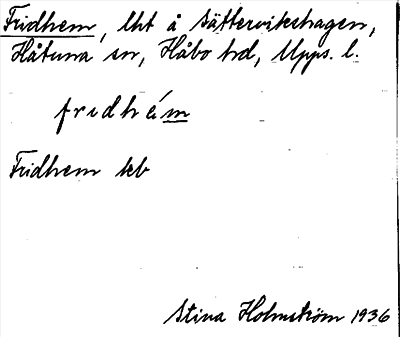 Fridhem, lht å Sättervikshagen,
Håtuna sn, Håbo hd, Upps. l.
fridhém
Fridhem kb
Stina Holmström 1936